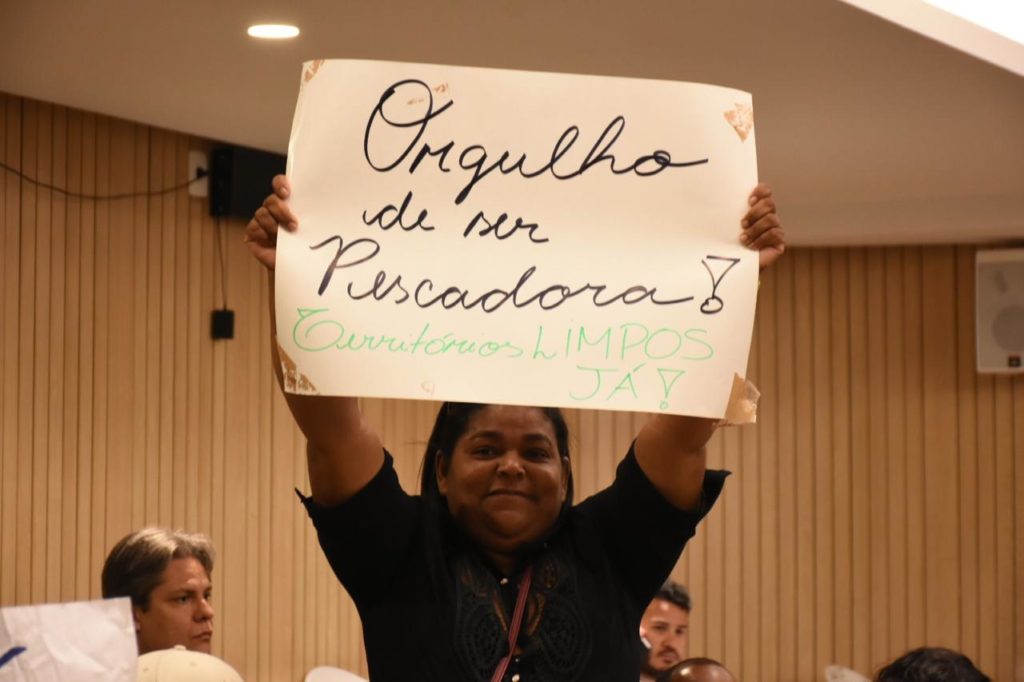 Orgulho
de ser
Pescadora!
Territórios LIMPOS
JÁ!